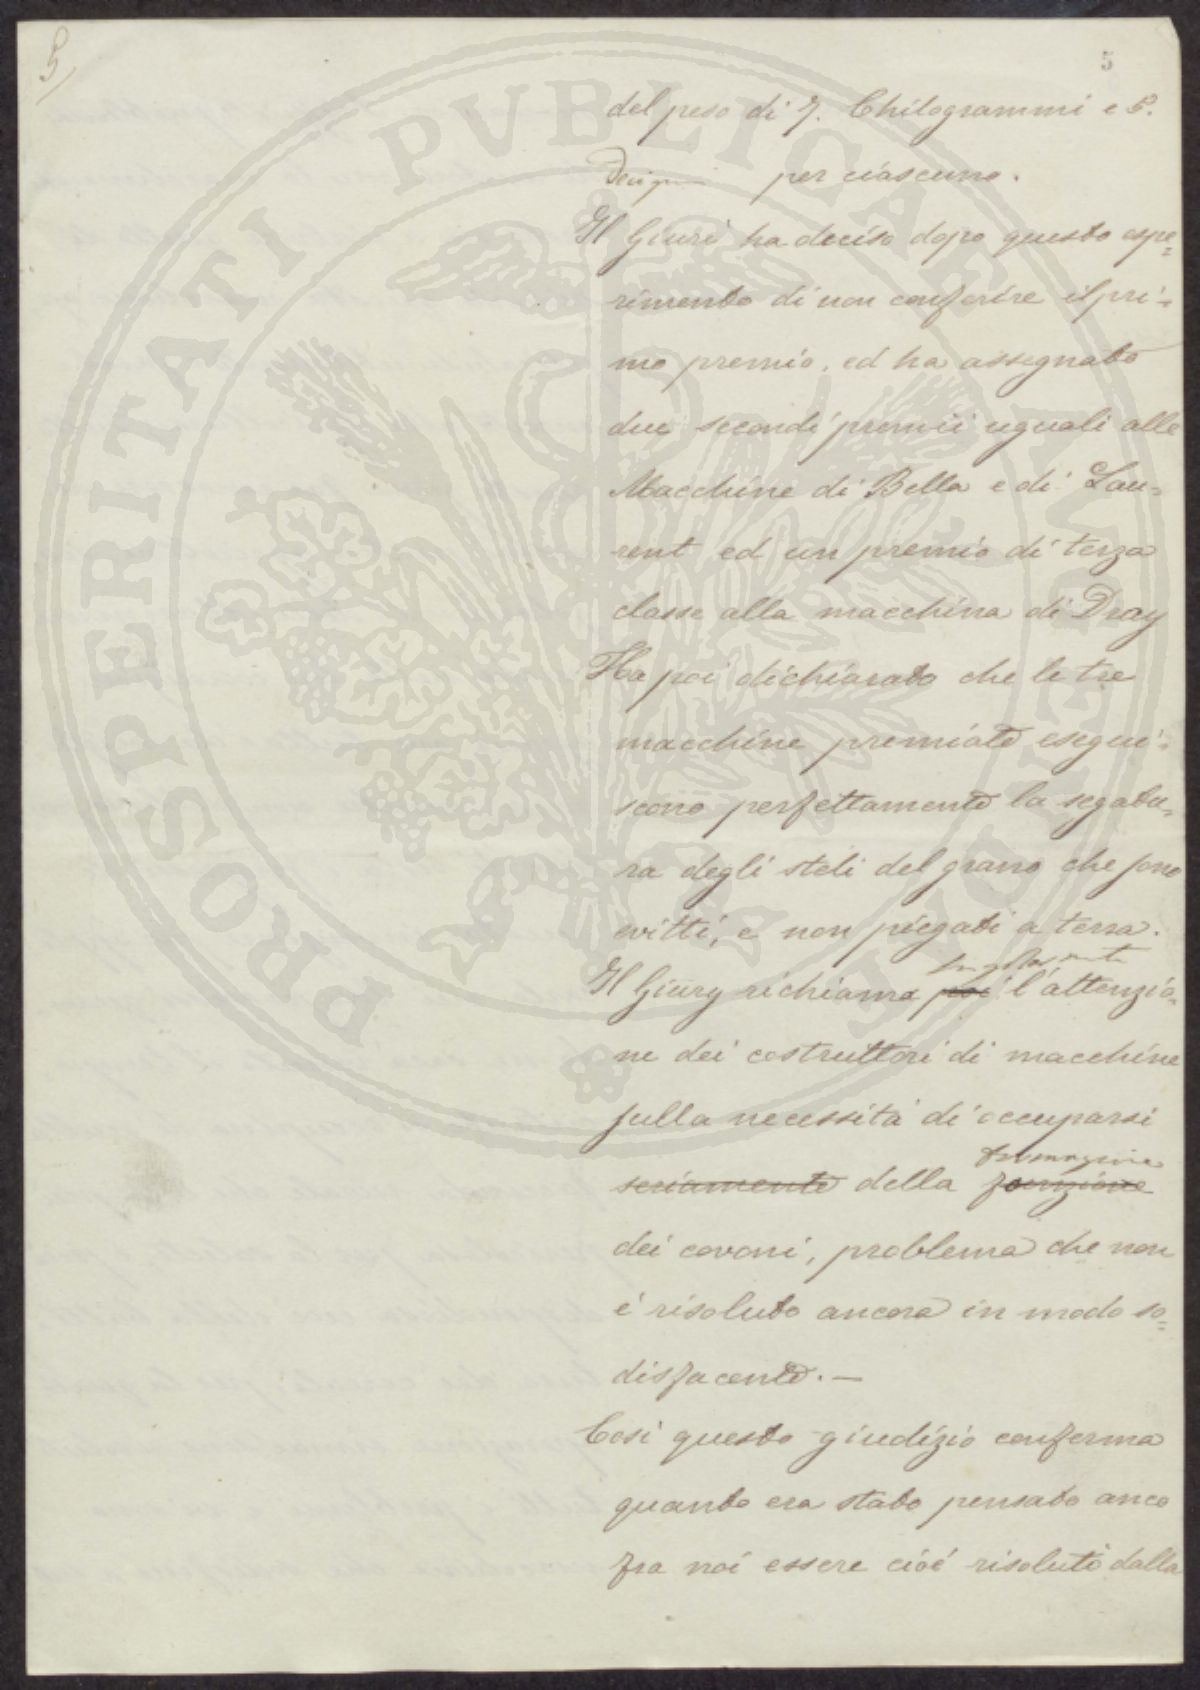 5
5
del peso di 7. Chilogrammi e 5.
per ciascuno.
Il Giurì ha deciso dopo questo espe=
rimento di non conferire il pri=
mo premio, ed ha assegnato
due secondi premii uguali alle
Macchine di Bella e di Lau=
rent ed un premio di terza
classe alla macchina di Dray
Ha poi dichiarato che le tre
macchine premiate esegui=
scono perfettamente la segatu=
ra degli steli del grano che sono
ritti, e non piegati a terra.
Il Giury richiama poi l'attenzio=
ne dei costruttori di macchine
sulla necessità di occuparsi
formazione
seriamente della funzione
dei covoni, problema che non
é risoluto ancora in modo so=
disfacente. —
Cosi questo giudizio conferma
quanto era stato pensato anco
fra noi essere cioé risoluto dalla
PROSPERITATI PUBLICAE AUGENDAE